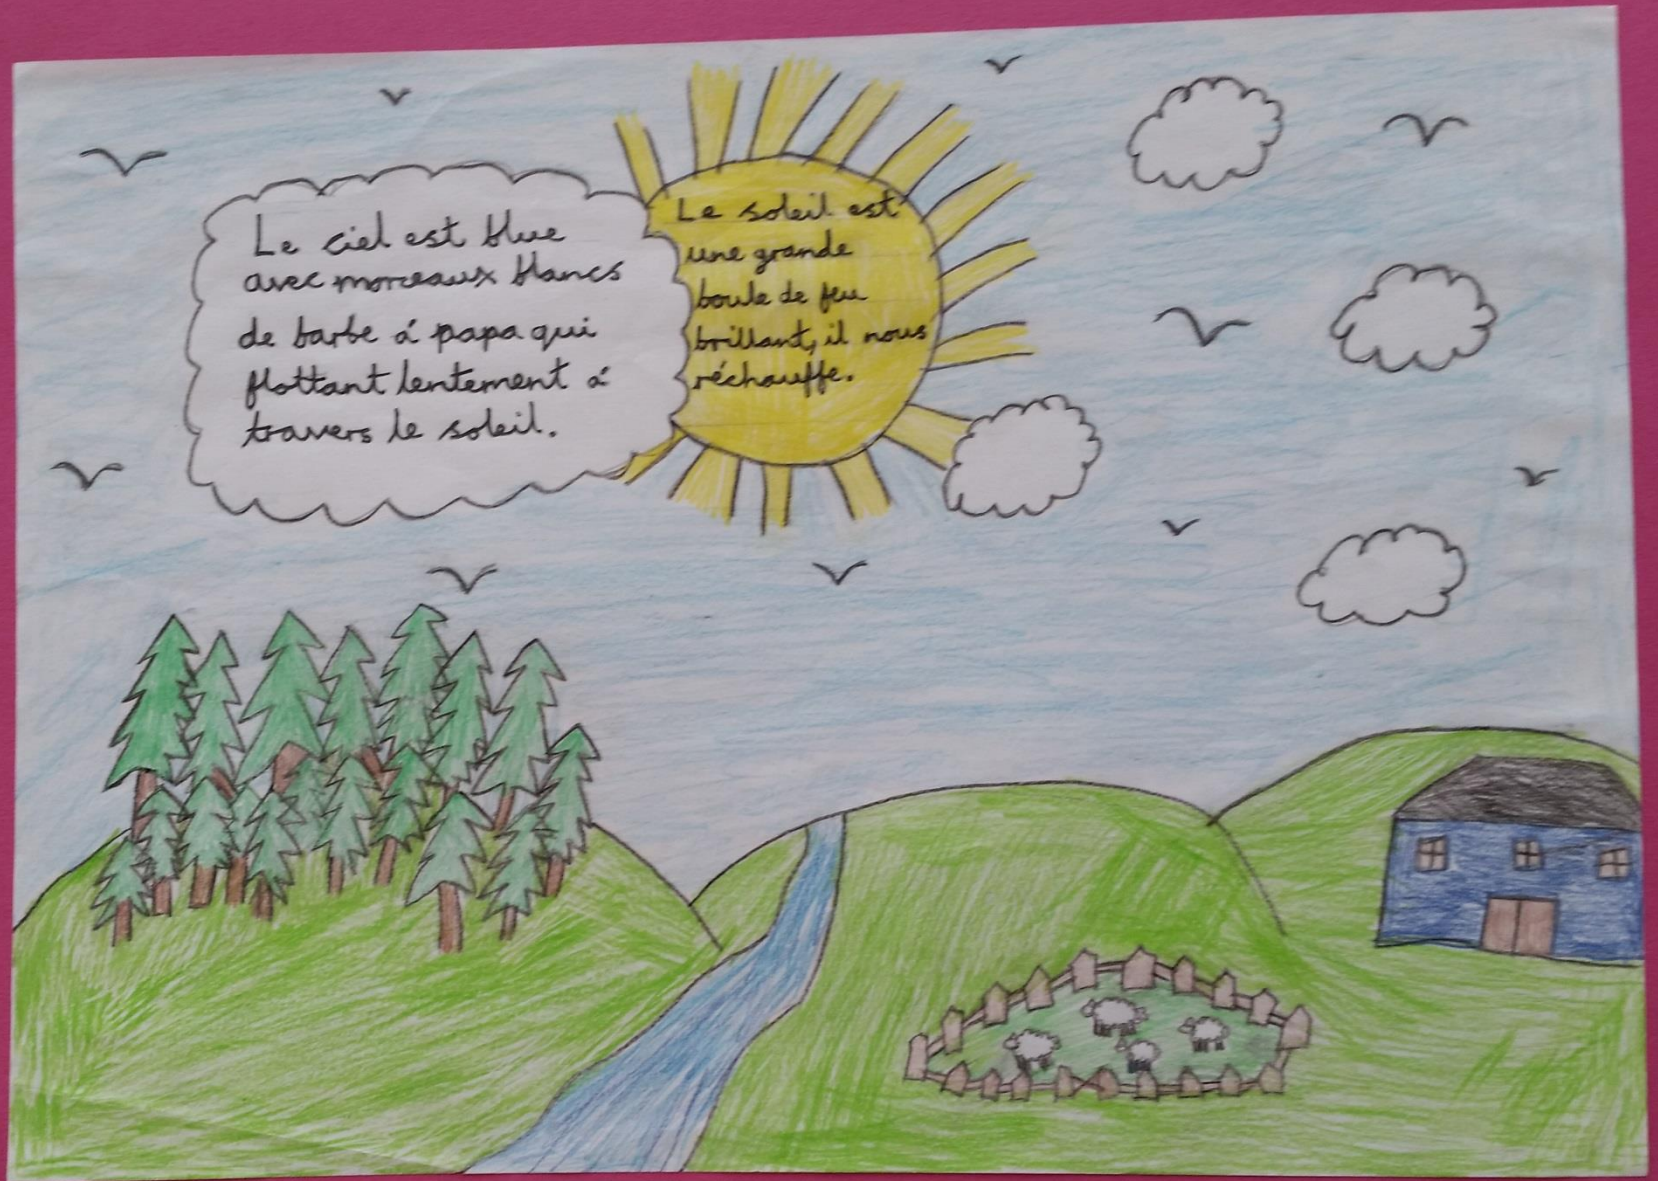 Le ciel est blue
avec morceaux blancs
de barbe á papa qui
flottant lentement á
travers le soleil.
Le soleil est
une grande
boule de feu
brillant, il nous
réchauffe.